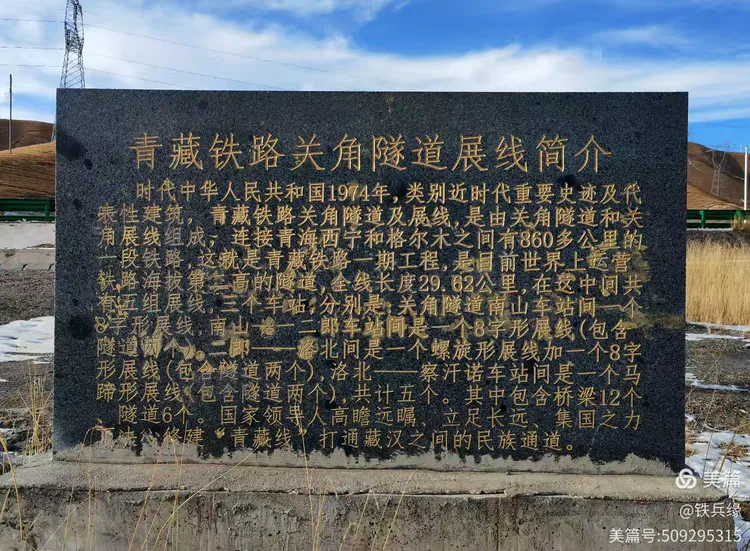 青藏铁路关角隧道展线简介
时代中华人民共和国1974年，类别近时代重要史迹及代
表性建筑，青藏铁路关角隧道及展线，是由关角隧道和关
角展线组成，连接青海西宁和格尔木之间有860多公里的
一段铁路，这就是青藏铁路一期工程，是目前世界上运营
铁路海拔第二高的隧道，全线长度29.62公里，在这中间共
有五组展线，三个车站；分别是：关角隧道南山车站间一个
8字形展线，南山——二郎车站间是一个8字形展线(包含
隧道两个)，二郎——洛北间是一个螺旋形展线加一个8字
形展线(包含隧道两个)，洛北——察汗诺车站间是一个马
蹄形展线(包含隧道两个)，共计五个。其中包含桥梁12个
隧道6个。国家领导人高瞻远瞩、立足长远、集国之力
修建“青藏线”打通藏汉之间的民族通道。
美篇
@铁兵缘
美篇号:509295315